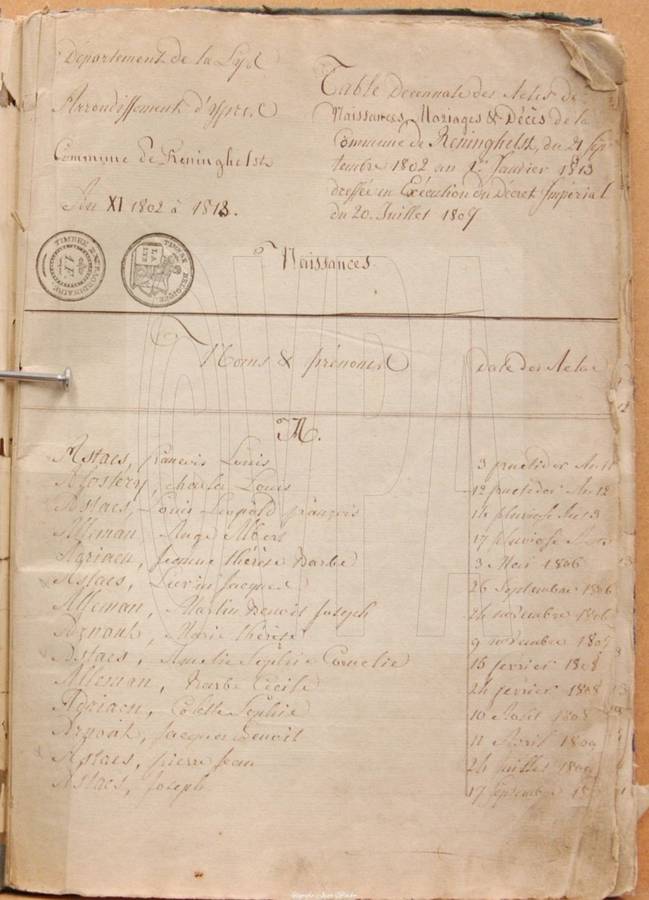 Département de la Lys
Arrondissement d'Ypres
Commune de Reninghelst
An XI 1802 à 1813.
Table Decennale des Actes de
Naissances, Mariages & Décès de la
Commune de Reninghelst, du 21 Sep-
tembre 1802 au 1er Janvier 1813
dressée en Exécution du Décret Impérial
du 20 Juillet 1807
TIMBRE EXTRAORDINAIRE
TIMBRE BELGIQUE
Naissances.
Noms & prénoms
date des Actes
A.
Astaes, françois Louis 3 fructidor An 11
Charles Louis 12 fructidor An 12
Astaes, Louis Leopold françois 14 pluviose An 13
Alleman, Ange Albert 17 pluviose
Adriaen, Jeanne thérèse Barbe 3 Mai 1806
Astaes, Livin Jacques 26 Septembre 1806
Alleman, Martin Benoit Joseph 24 novembre 1806
Marie thérèse 9 novembre 1807
Astaes, Amelie Sophie Cornelie 15 fevrier 1808
Alleman, Barbe Cecile 24 fevrier 1808
Adriaen, Colette Sophie 10 Août 1808
Jacques Benoit 11 Avril 1809
Astaes, pierre Jean 24 Juillet 1809
Astaes, Joseph 17 Septembre